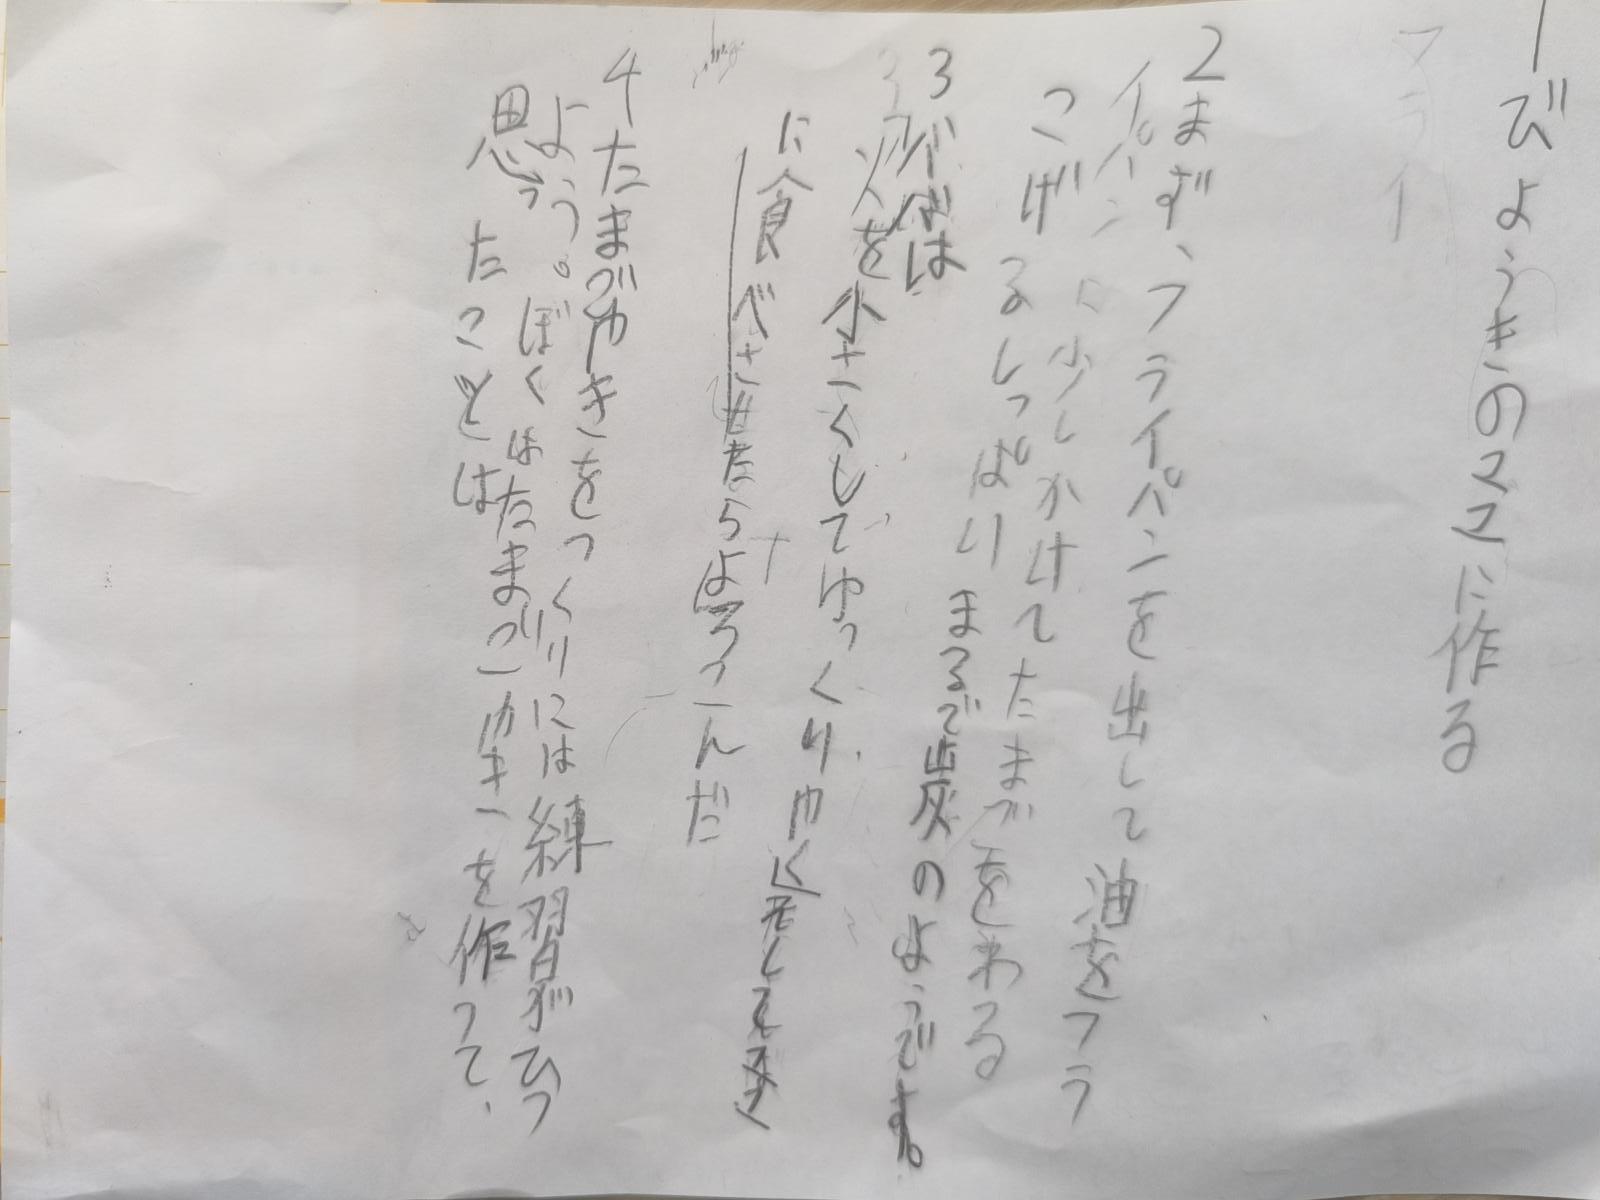 1びようきのママに作る
2まず、フライパンを出して油をフラ
イパンに少しかけてたまごをわる
こげるしっぱりまるで炭のようです。
3パパは
火を小さくしてゆっくりやく
に食べさせたらよろこんだ
4たまごやきをつくりには練習がひつ
よう。ぼくはたまごやきーを作って、
思ったことは